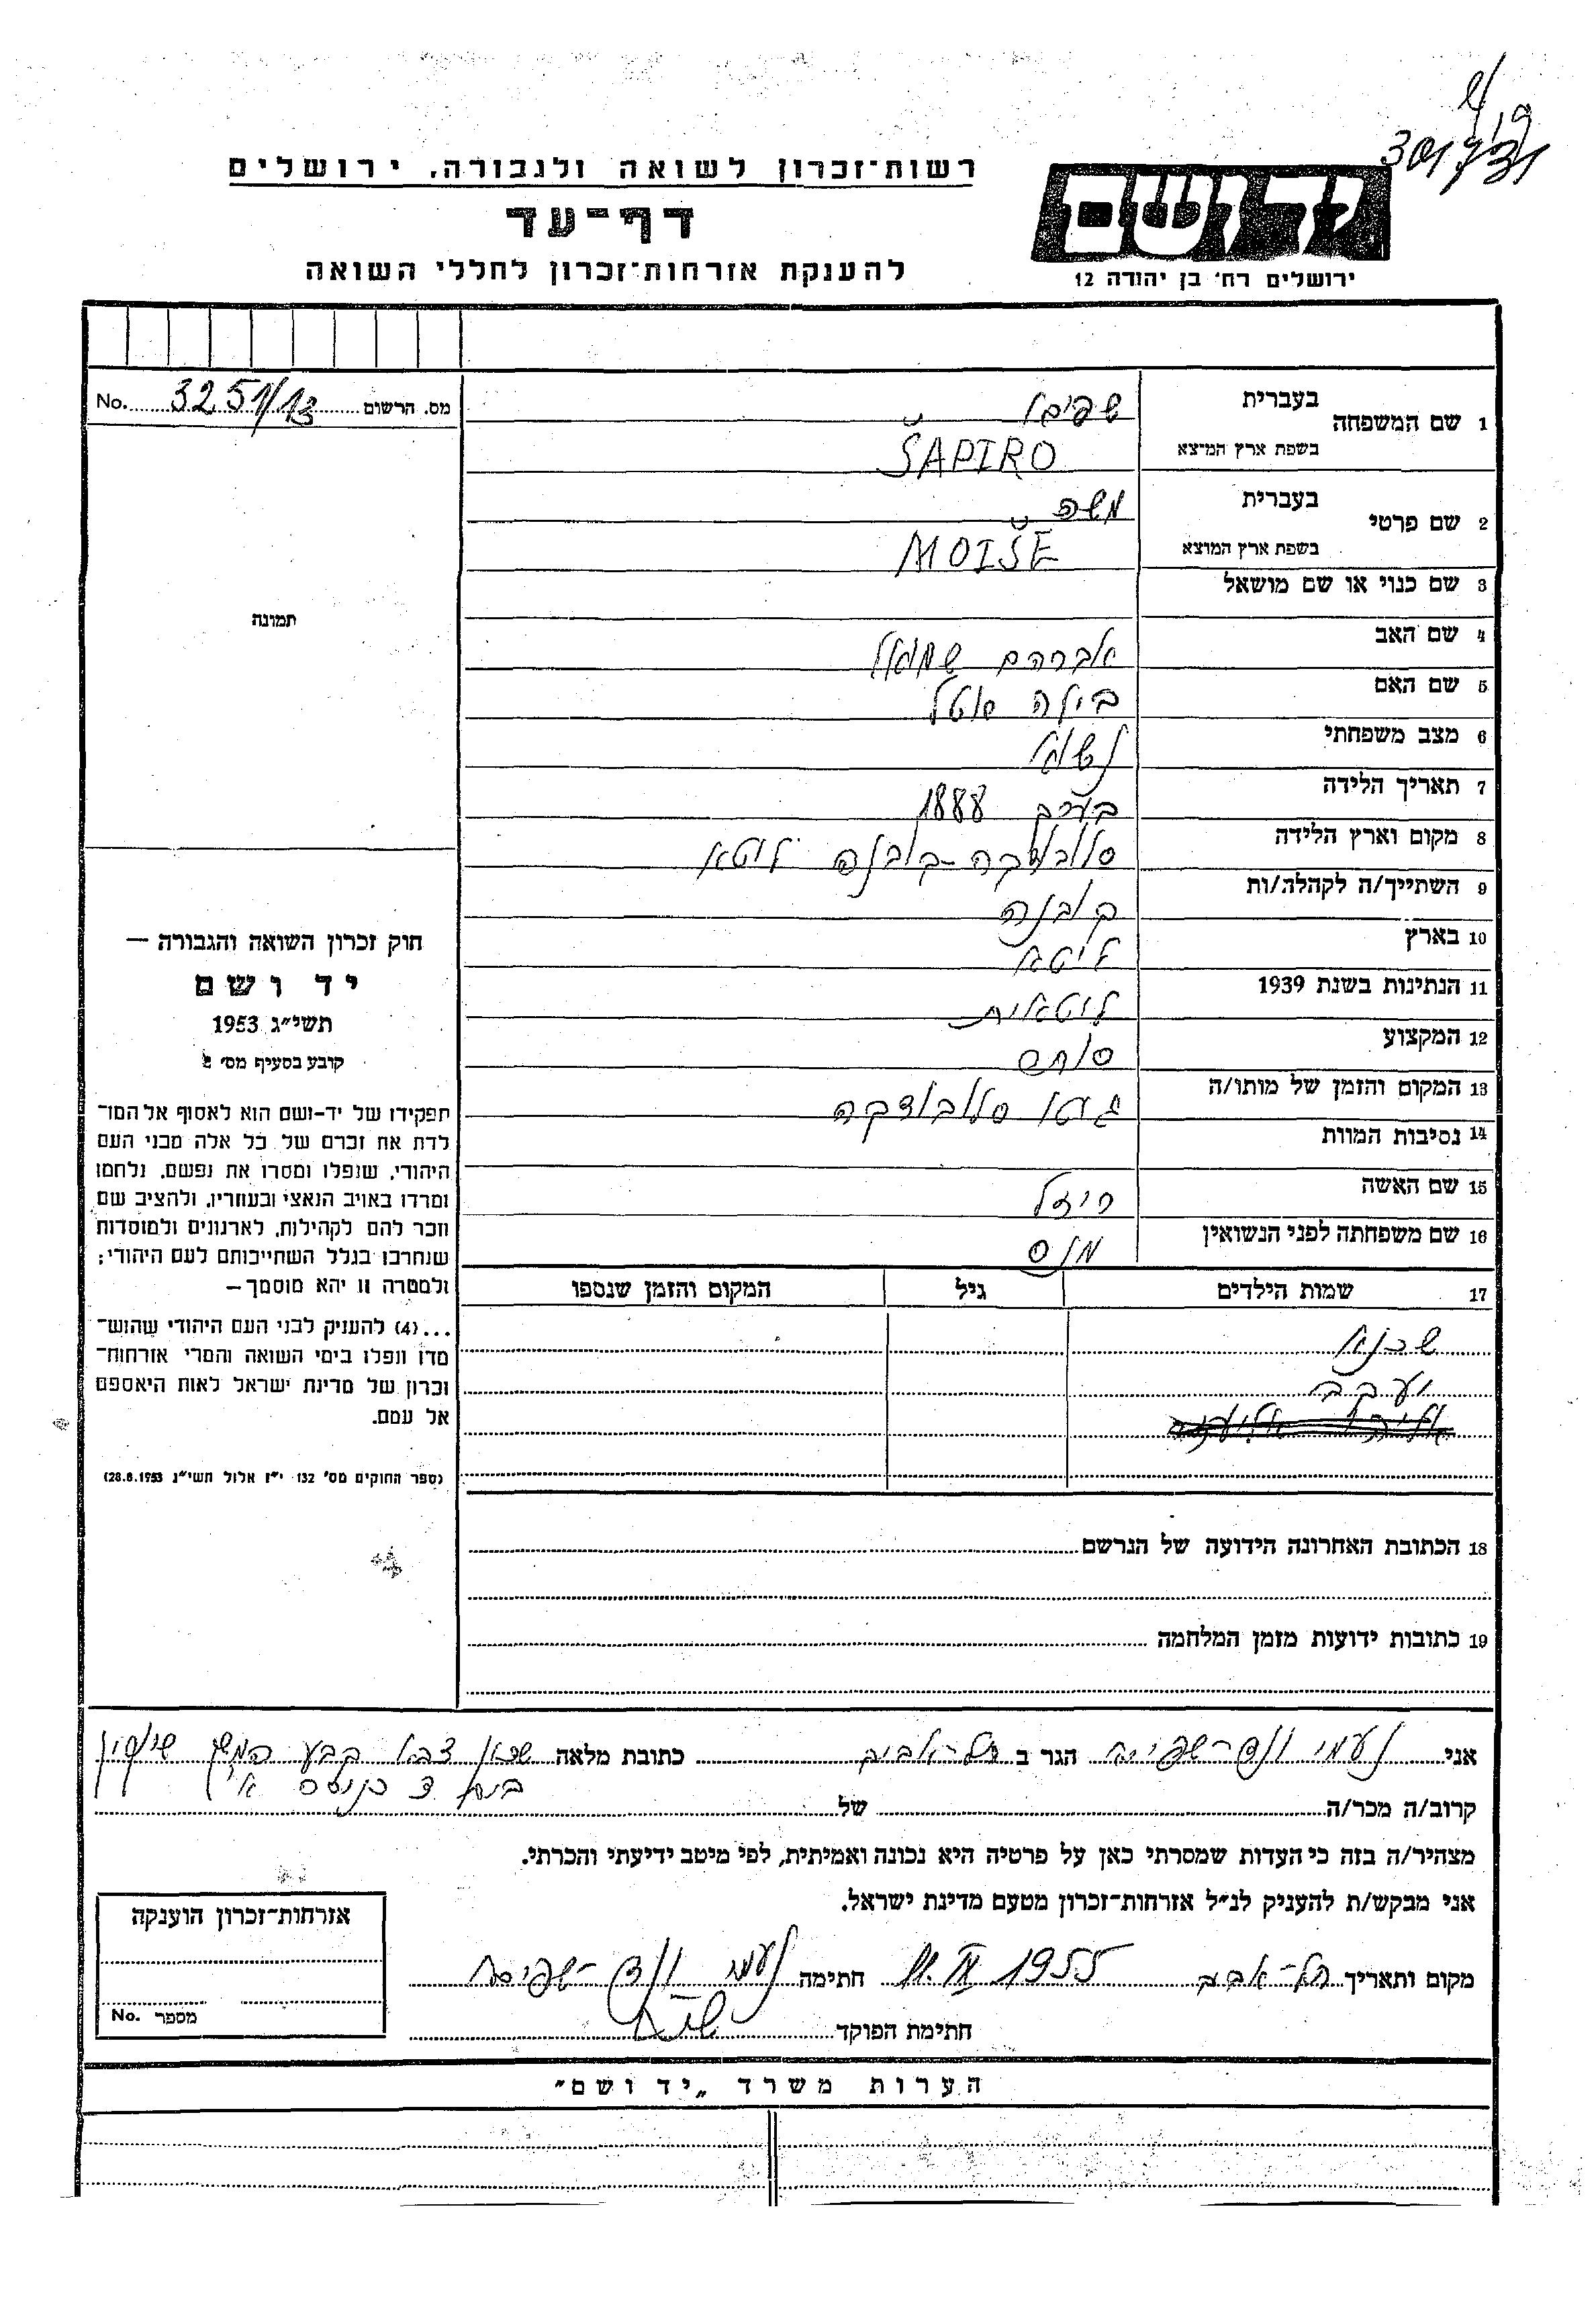 301731
9/19
רשות־זכרון לשואה ולגבורה. ירושלים
יד ושם
דף־עד
להענקת אזרחות־זכרון לחללי השואה
ירושלים רח׳ בן יהודה 12
מס. הרשום 3251/13 No.
1 שם המשפחה
בעברית שפירו
בשפת ארץ המוצא ŠAPIRO
2 שם פרטי
בעברית משה
בשפת ארץ המוצא MOIŠE
3 שם כנוי או שם מושאל
4 שם האב אברהם שמואל
5 שם האם ביילה
6 מצב משפחתי נשוי
7 תאריך הלידה בערך 1888
8 מקום וארץ הלידה סלובודקה-קובנה ליטא
9 השתייך/ה לקהלה/ות קובנה
10 בארץ ליטא
11 הנתינות בשנת 1939 ליטאית
12 המקצוע סוחר
13 המקום והזמן של מותו/ה גטו סלובודקה
14 נסיבות המוות
15 שם האשה
16 שם משפחתה לפני הנשואין
17 שמות הילדים גיל המקום והזמן שנספו
שכנא
יעקב
תמונה
חוק זכרון השואה והגבורה —
יד ושם
תשי״ג 1953
קובע בסעיף מס׳ 2
תפקידו של יד-ושם הוא לאסוף אל המו־
לדת את זכרם של כל אלה מבני העם
היהודי, שנפלו ומסרו את נפשם, נלחמו
ומרדו באויב הנאצי ובעוזריו, ולהציב שם
וזכר להם לקהילות, לארגונים ולמוסדות
שנחרבו בגלל השתייכותם לעם היהודי;
ולמטרה זו יהא מוסמך —
...(4) להעניק לבני העם היהודי שהוש־
מדו ונפלו בימי השואה והמרי אזרחות־
זכרון של מדינת ישראל לאות היאספם
אל עמם.
(ספר החוקים מס׳ 132 י״ז אלול תשי״ג 28.8.1953)
18 הכתובת האחרונה הידועה של הנרשם
19 כתובות ידועות מזמן המלחמה
אני נעמי הגר ב תל-אביב כתובת מלאה שכון צבא קבע
קרוב/ה מכר/ה של
מצהיר/ה בזה כי העדות שמסרתי כאן על פרטיה היא נכונה ואמיתית, לפי מיטב ידיעתי והכרתי.
אני מבקש/ת להעניק לנ״ל אזרחות־זכרון מטעם מדינת ישראל.
מקום ותאריך תל-אביב 1955 חתימה נעמי
חתימת הפוקד
אזרחות־זכרון הוענקה
מספר No.
הערות משרד „יד ושם״